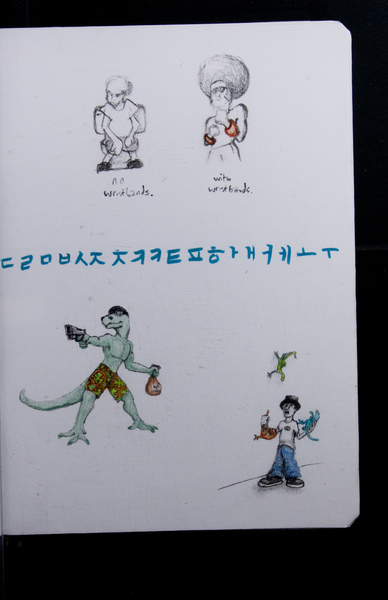 no
wristbands.
with
wristbands.
ㄷㄹㅁㅂㅅㅈㅊㅋㅋㅌㅍㅎㅏㅐㅓㅔㅗㅜ